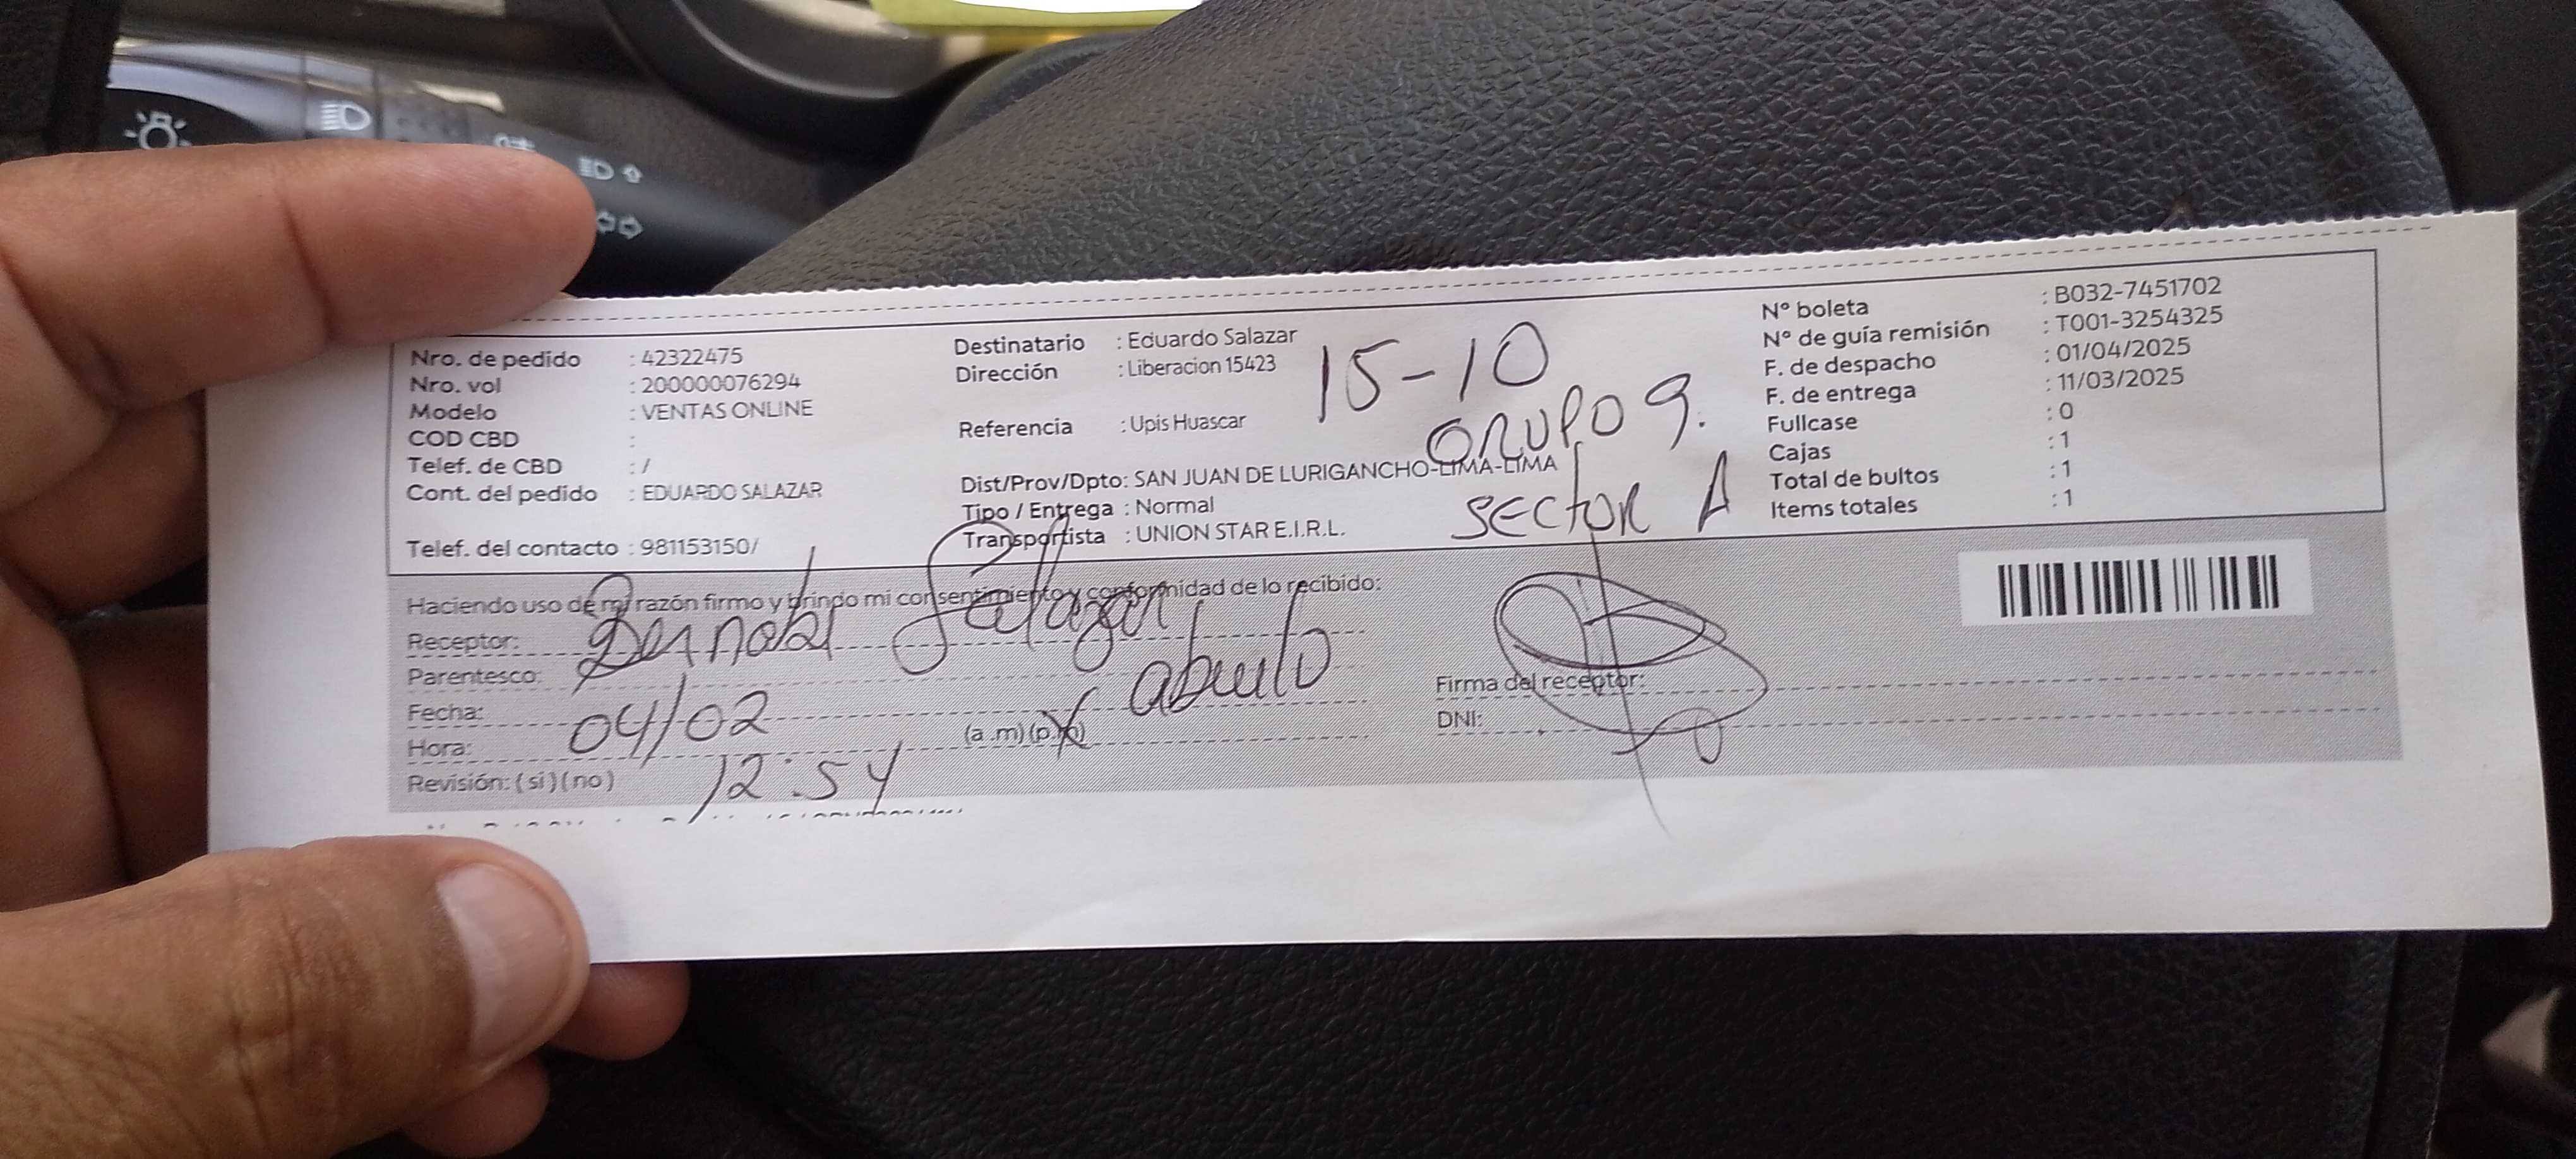 Nro. de pedido : 42322475
Nro. vol : 200000076294
Modelo : VENTAS ONLINE
COD CBD :
Telef. de CBD : /
Cont. del pedido : EDUARDO SALAZAR
Telef. del contacto : 981153150/
Destinatario : Eduardo Salazar
Dirección : Liberacion 15423
Referencia : Upis Huascar
Dist/Prov/Dpto: SAN JUAN DE LURIGANCHO-LIMA-LIMA
Tipo / Entrega : Normal
Transportista : UNION STAR E.I.R.L.
15-10
GRUPO 9.
SECTOR A
N° boleta : B032-7451702
N° de guía remisión : T001-3254325
F. de despacho : 01/04/2025
F. de entrega : 11/03/2025
Fullcase : 0
Cajas : 1
Total de bultos : 1
Items totales : 1
Haciendo uso de mi razón firmo y brindo mi consentimiento y conformidad de lo recibido:
Receptor: Salazar
Parentesco: abuelo
Fecha: 04/02
Hora: 12:54 (a.m) (p.m)
Revisión: (si) (no)
Firma del receptor:
DNI: